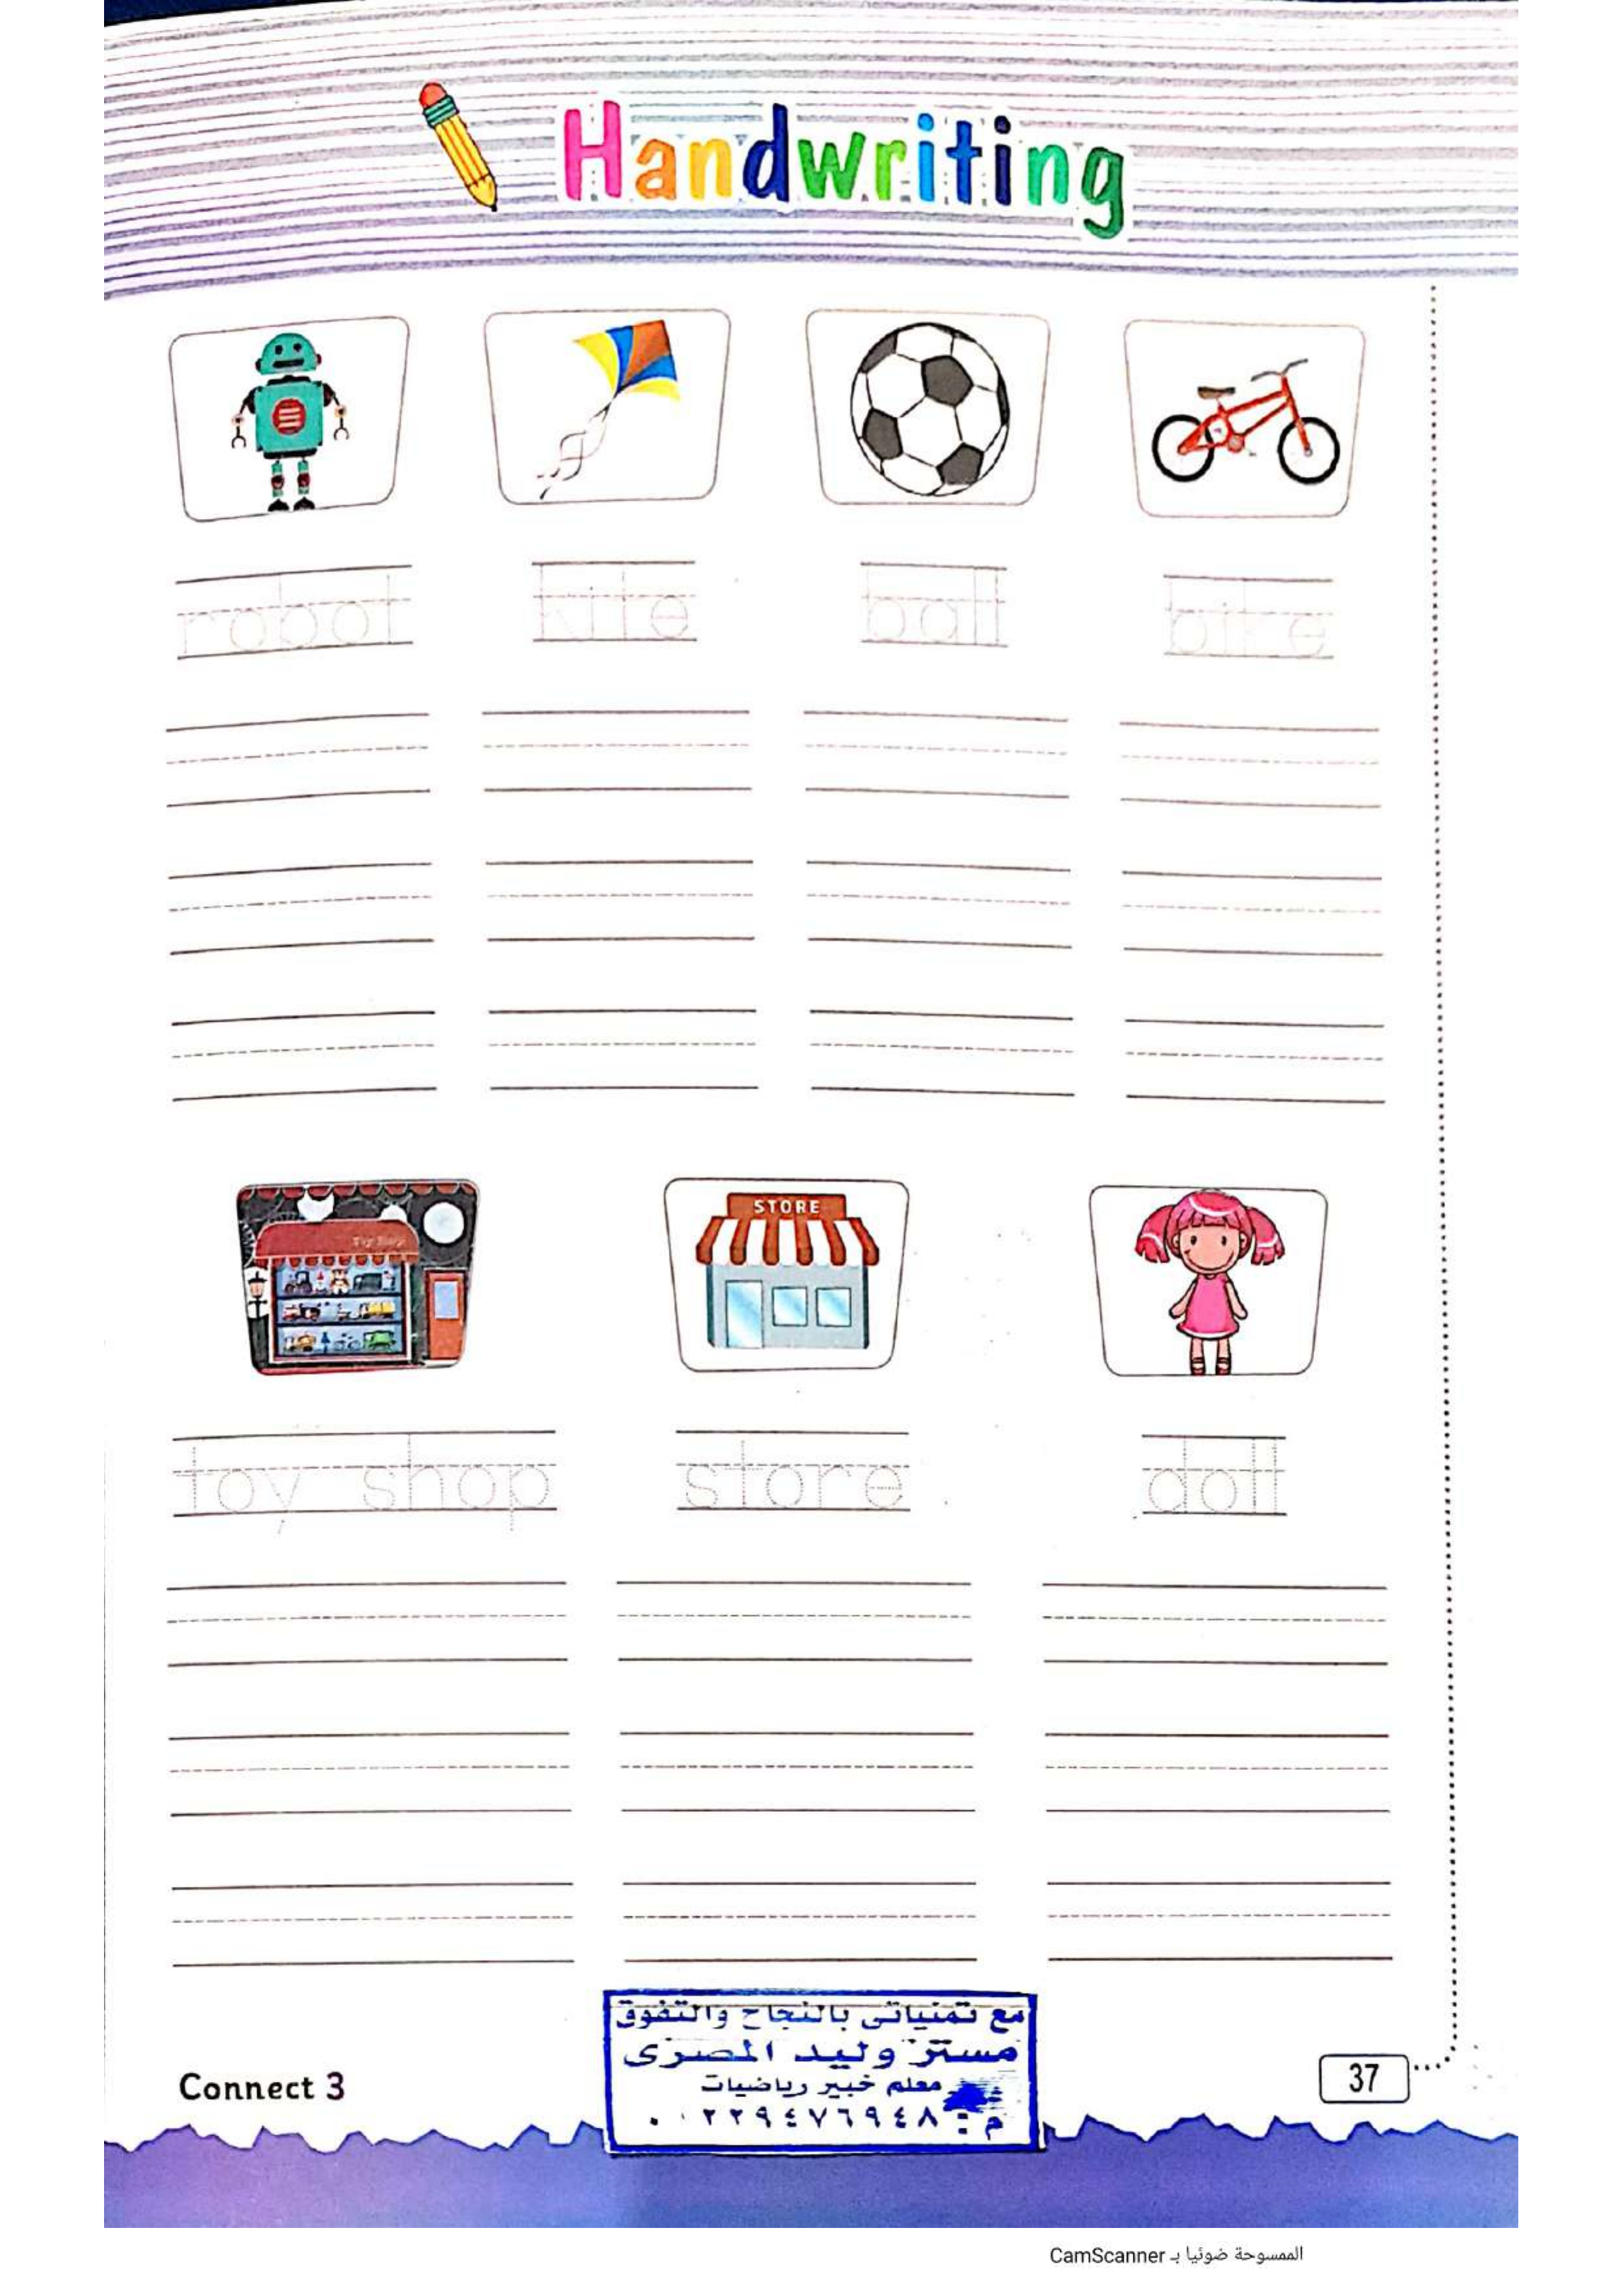 Handwriting
robot kite ball bike
Toy Shop
STORE
toy shop store doll
مع تمنياتى بالنجاح والتفوق
مستر وليد المصرى
معلم خبير رياضيات
Connect 3
37
الممسوحة ضوئيا بـ CamScanner